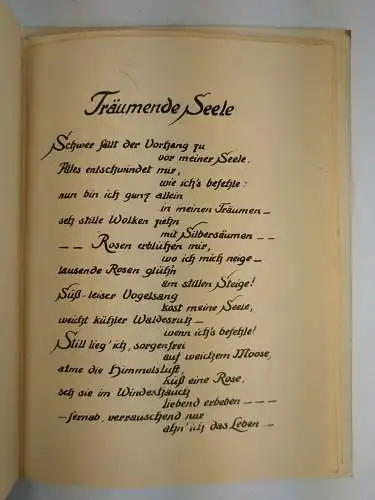 Träumende Seele
Schwer fällt der Vorhang zu
vor meiner Seele.
Alles entschwindet mir,
wie ich's befehle:
nun bin ich ganz allein
in meinen Träumen —
seh stille Wolken ziehn
mit Silbersäumen — —
— — Rosen erblühen mir,
wo ich mich neige —
tausende Rosen glühn
am stillen Steige!
Süß-leiser Vogelsang
kost meine Seele,
weicht kühler Waldesruh —
wenn ich's befehle!
Still lieg' ich, sorgenfrei
auf weichem Moose,
atme die Himmelsluft,
küß eine Rose,
seh sie im Windeshauch
liebend erbeben — — —
— fernab, verrauschend nur
ahn' ich das Leben —